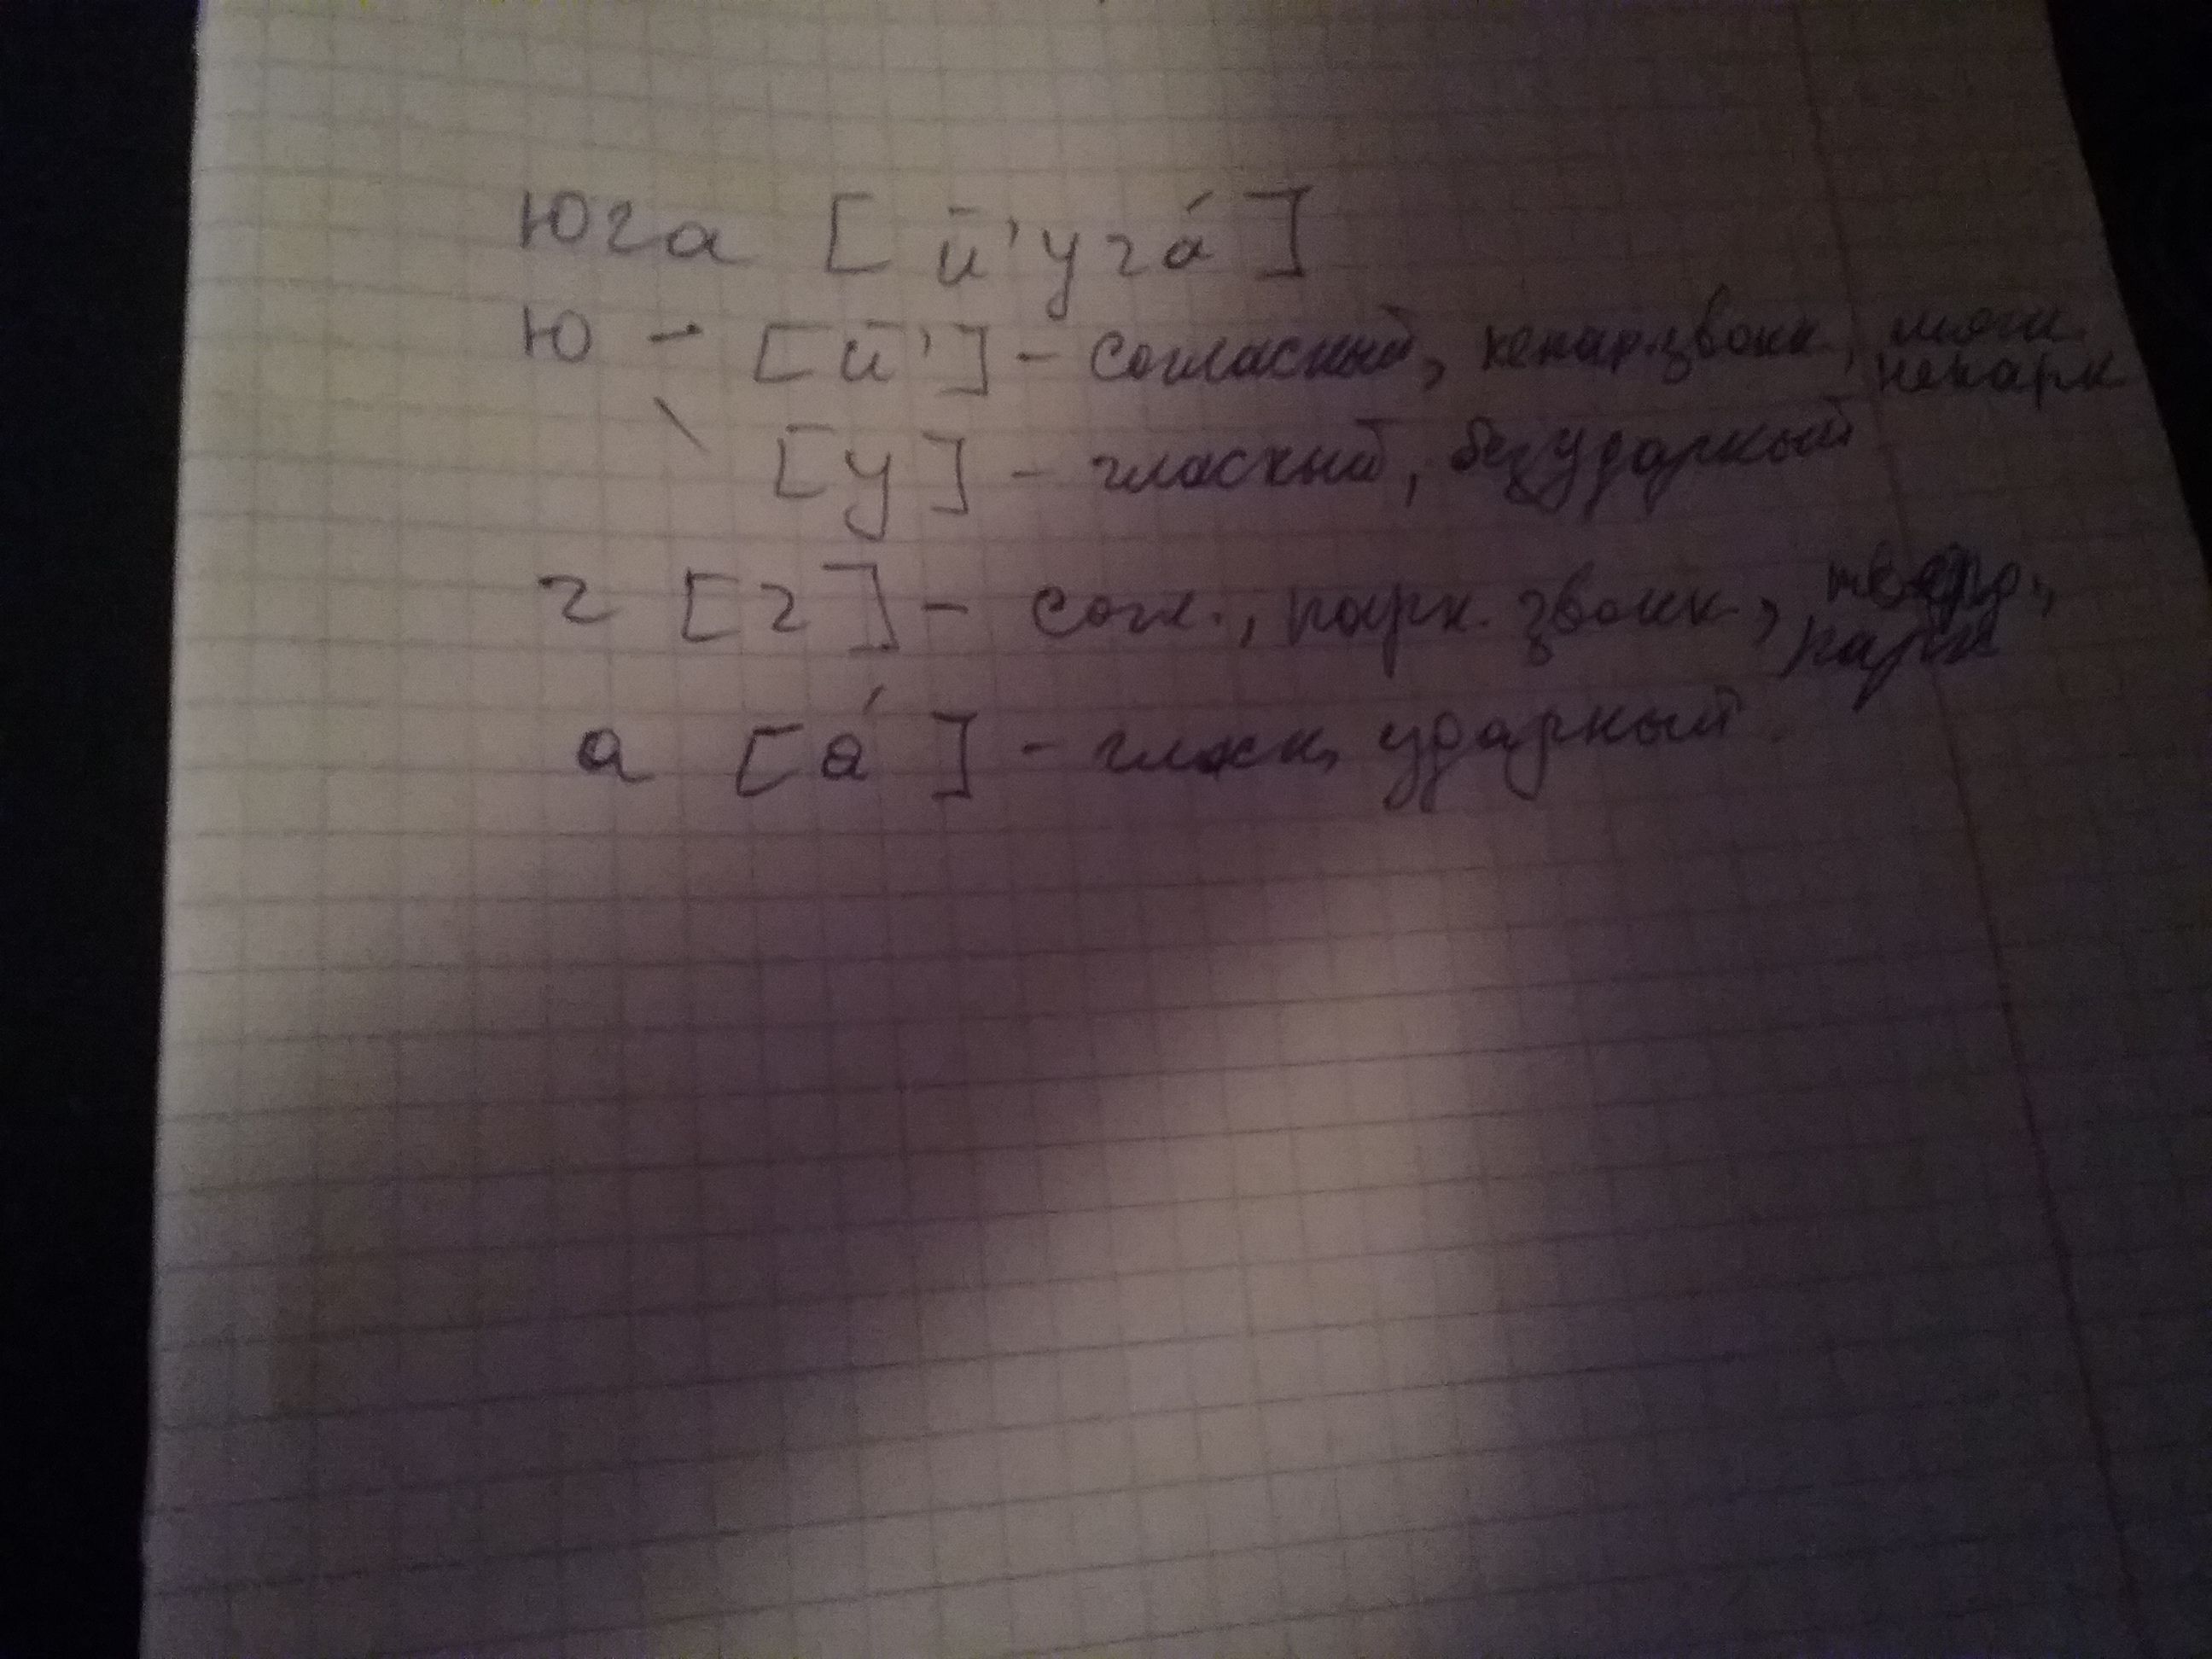 юга [й'уга́]
ю - [й'] - согласный, непар.звонк, мягк. непарн
\ [у] - гласный, безударный
г [г] - согл., парн. звонк., твёрд., парн
а [а́] - гласн, ударный